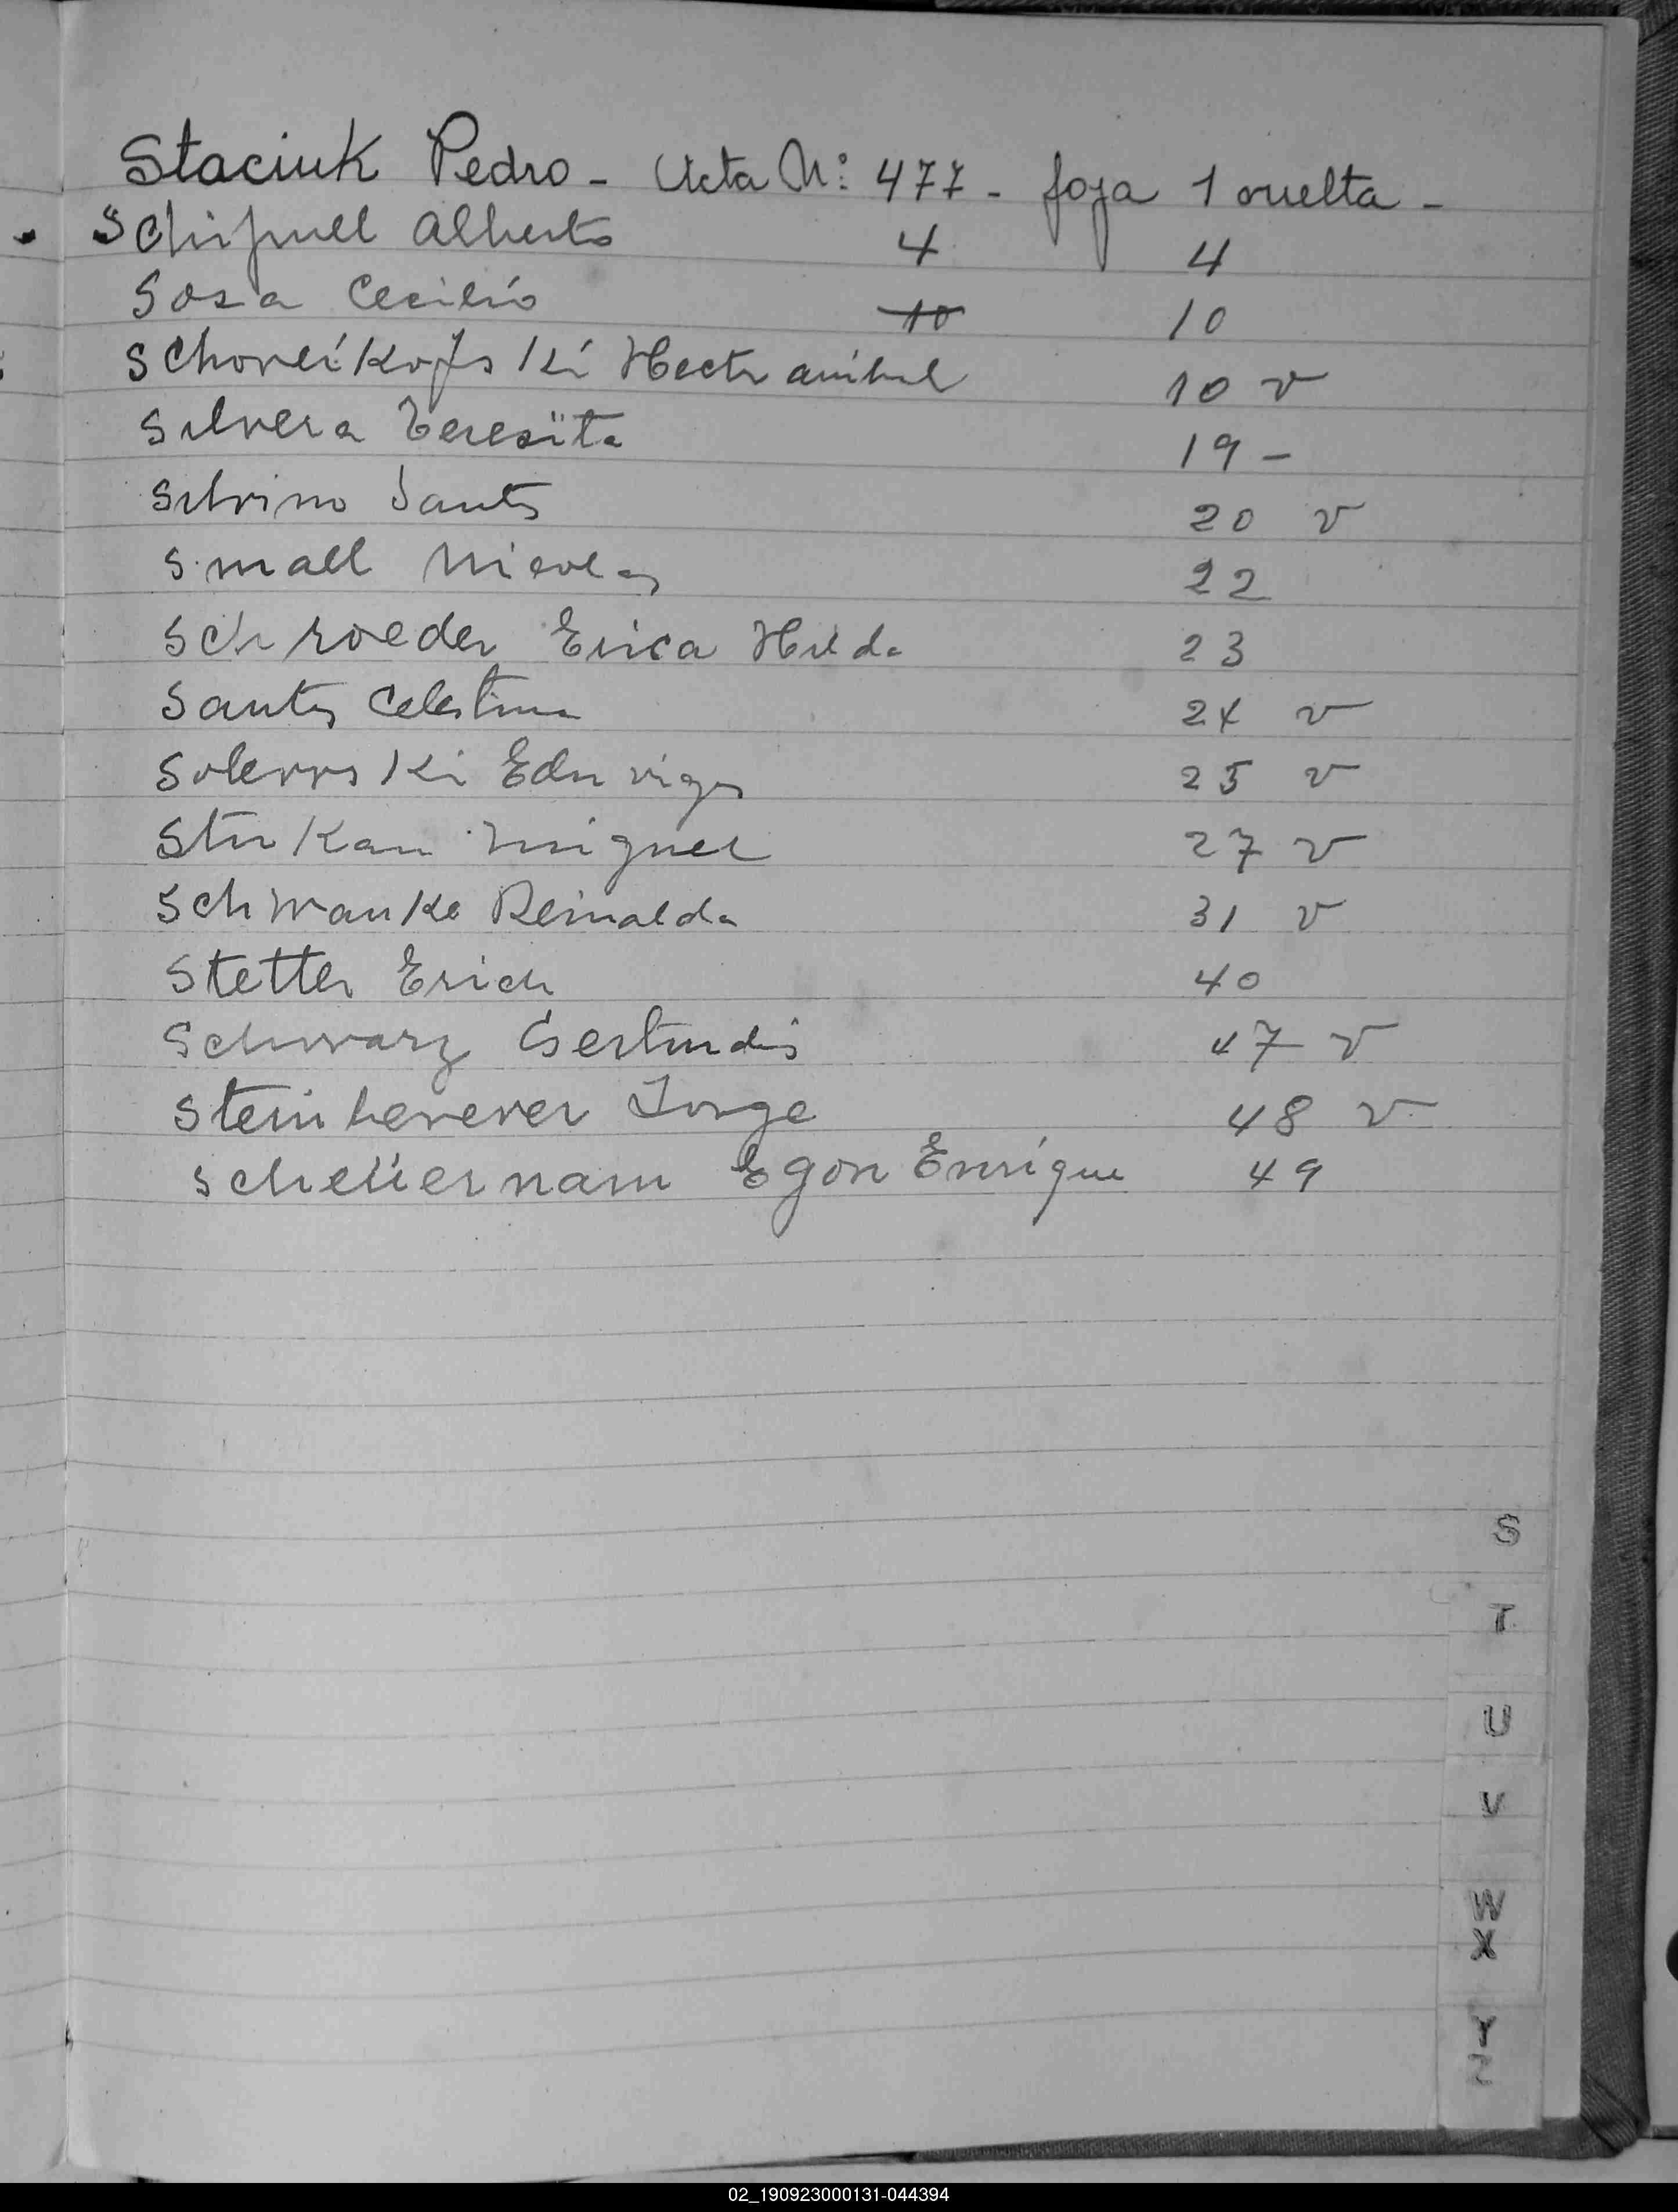 Staciuk Pedro - Acta Nº: 477 - foja 1 vuelta -
Alberto 4 4
Sosa Cecilio 10 10
Schoreikofski Hector anibal 10 v
Silvera Teresita 19 -
Silvino Santos 20 v
Small Nicolas 22
Schroeder Erica Hilda 23
Santos Celestina 24 v
Eduviges 25 v
Miguel 27 v
Schwanke Reinalda 31 v
Stetter Erich 40
Schwarz Gertrudis 47 v
Jorge 48 v
Scheüernam Egon Enrique 49
S
T
U
V
W
X
Y
Z
02_190923000131-044394